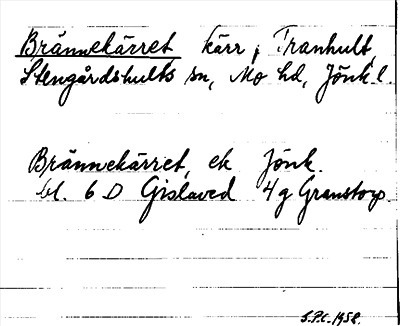 Brännekärret kärr, Tranhult,
Stengårdshults sn, Mo hd, Jönk l.
Brännekärret, ek Jönk.
bl. 6 D Gislaved 4 g Granstorp.
S.P.C. 1958.